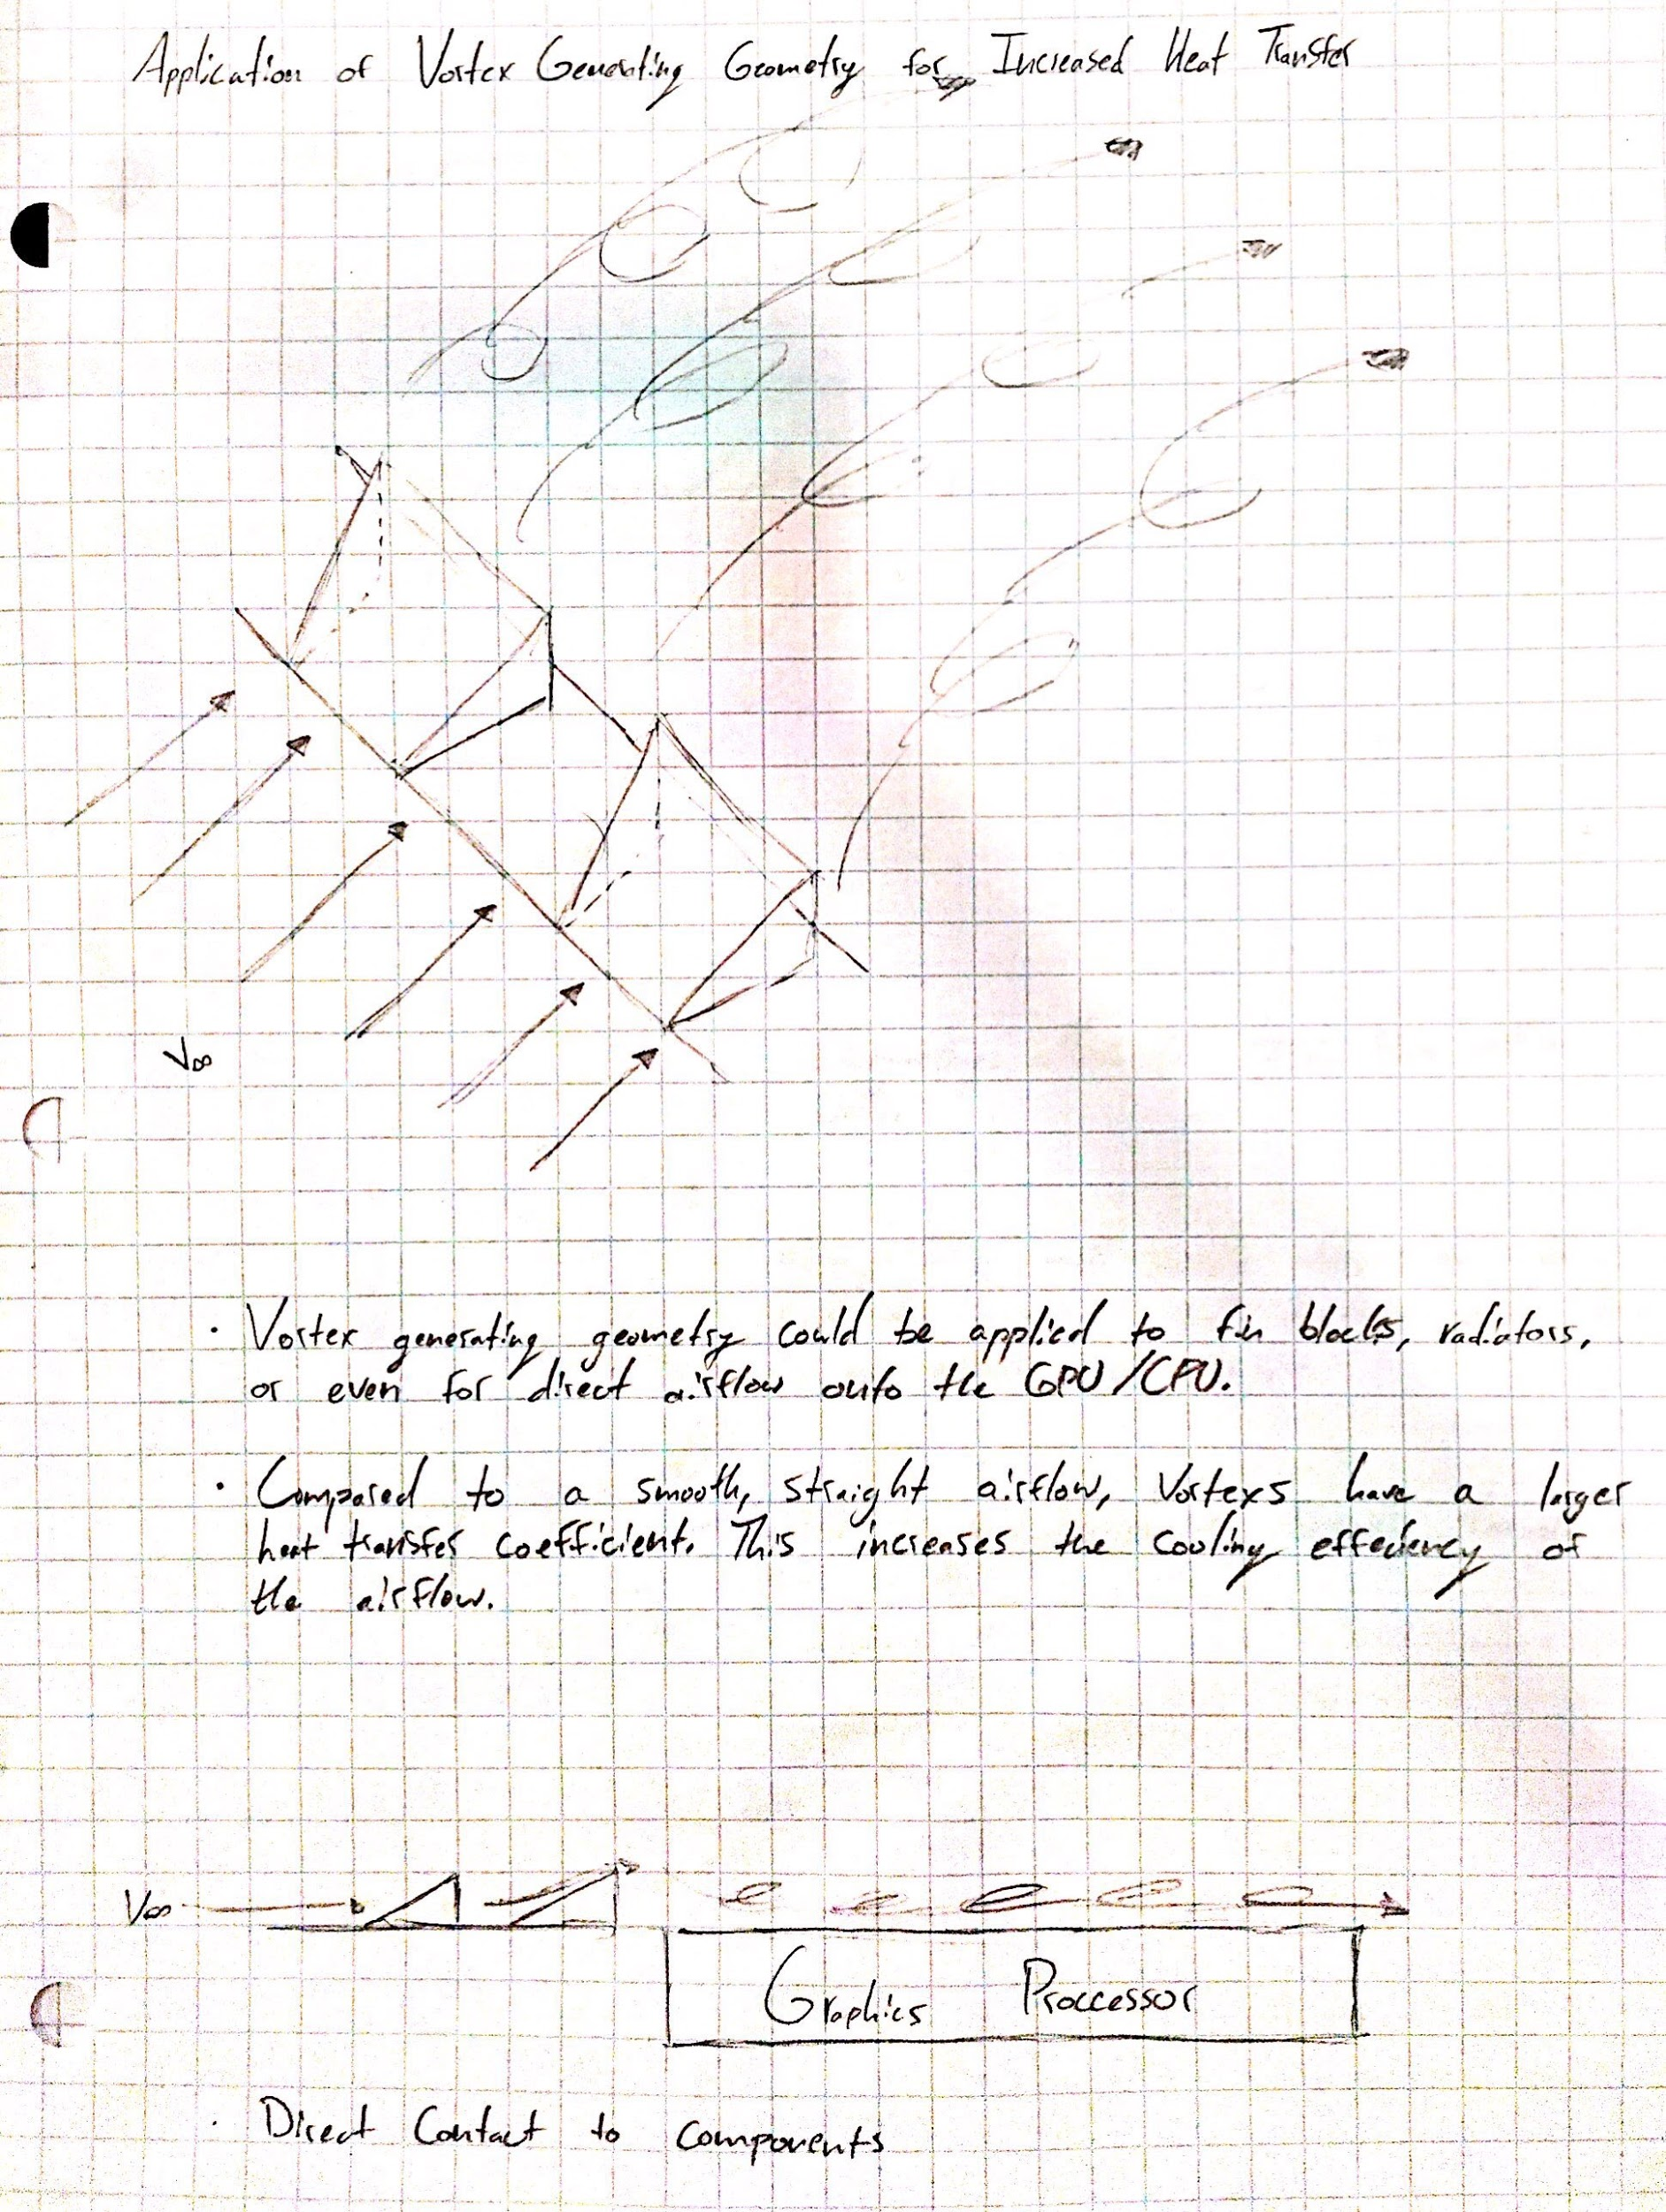 Application of Vortex Generating Geometry for Increased Heat Transfer
V∞
· Vortex generating geometry could be applied to fin blocks, radiators,
or even for direct airflow onto the GPU/CPU.
· Compared to a smooth, straight airflow, Vortexs have a larger
heat transfer coefficient. This increases the cooling effeciency of
the airflow.
V∞
Graphics Proccessor
· Direct Contact to components